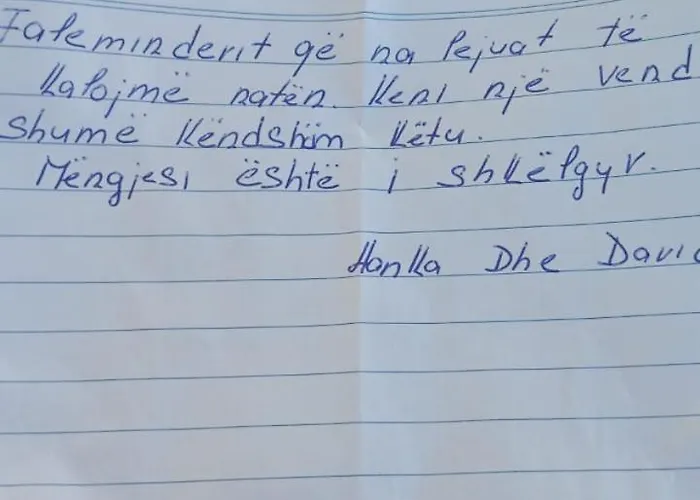 Faleminderit që na lejuat të
kalojmë natën. Keni një vend
shumë këndshëm këtu.
Mëngjesi është i shkëlqyr.
Hanka Dhe David